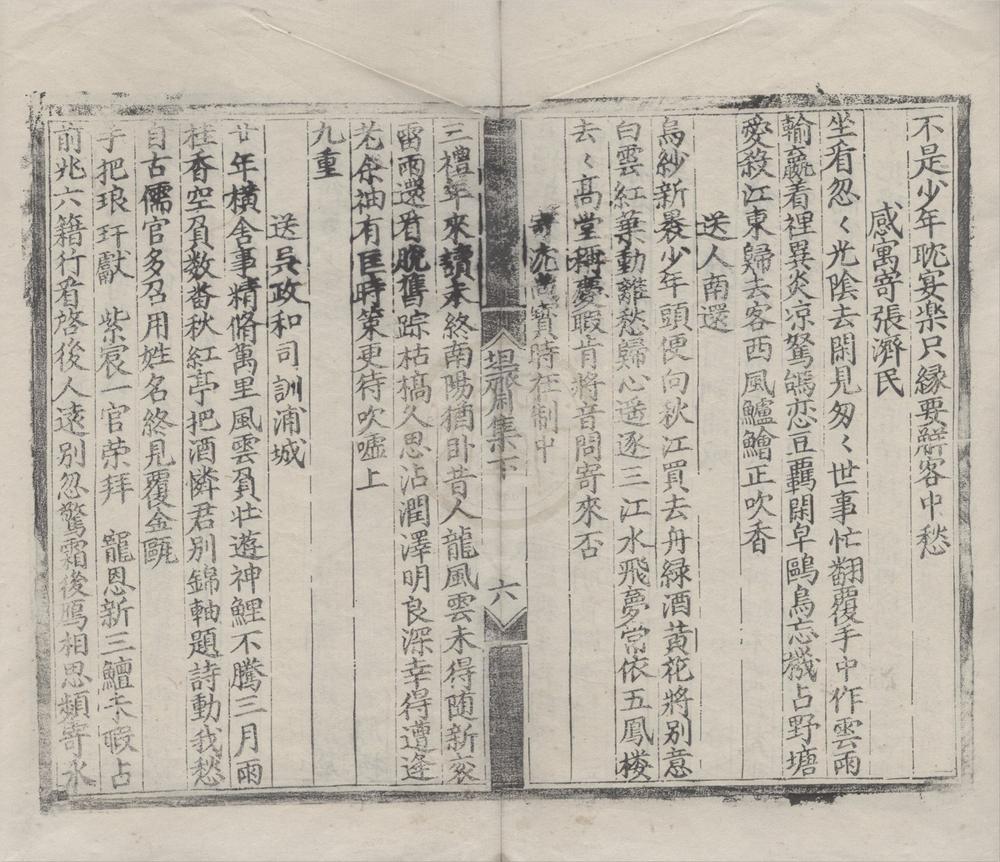 不是少年耽宴楽只縁要觧客中愁
感寓寄張濟民
坐看忽〻光陰去閑見匆〻世事忙翻覆手中作雲雨
輸贏着裡異炎凉駑駘恋豆羈閑皁鷗鳥忘機占野塘
愛殺江東歸去客西風鱸鱠正吹香
送人南還
烏紗新裊少年頭便向秋江買去舟緑酒黃花將別意
白雲紅葉動離愁歸心遥逐三江水飛夢常依五鳳樓
去〻髙堂稱慶暇肯將音問寄來否
時在制中
三禮年來讀未終南陽猶卧昔人龍風雲未得随新
雷雨還看脫舊踪枯槁久思沾潤澤明良深幸得遭逢
袖有匡時策更待吹嘘上
九重
送吳政和司訓浦城
廿年横舍事精脩萬里風雲負壮遊神鯉不騰三月雨
桂香空負数番秋紅亭把酒憐君別錦軸題詩動我愁
自古儒官多召用姓名終見覆金甌
手把琅玕獻 紫宸一官荣拜 寵恩新三鱣未暇占
前兆六籍行看啓後人遠別忽驚霜後鴈相思頻寄水
坦齋集下
六